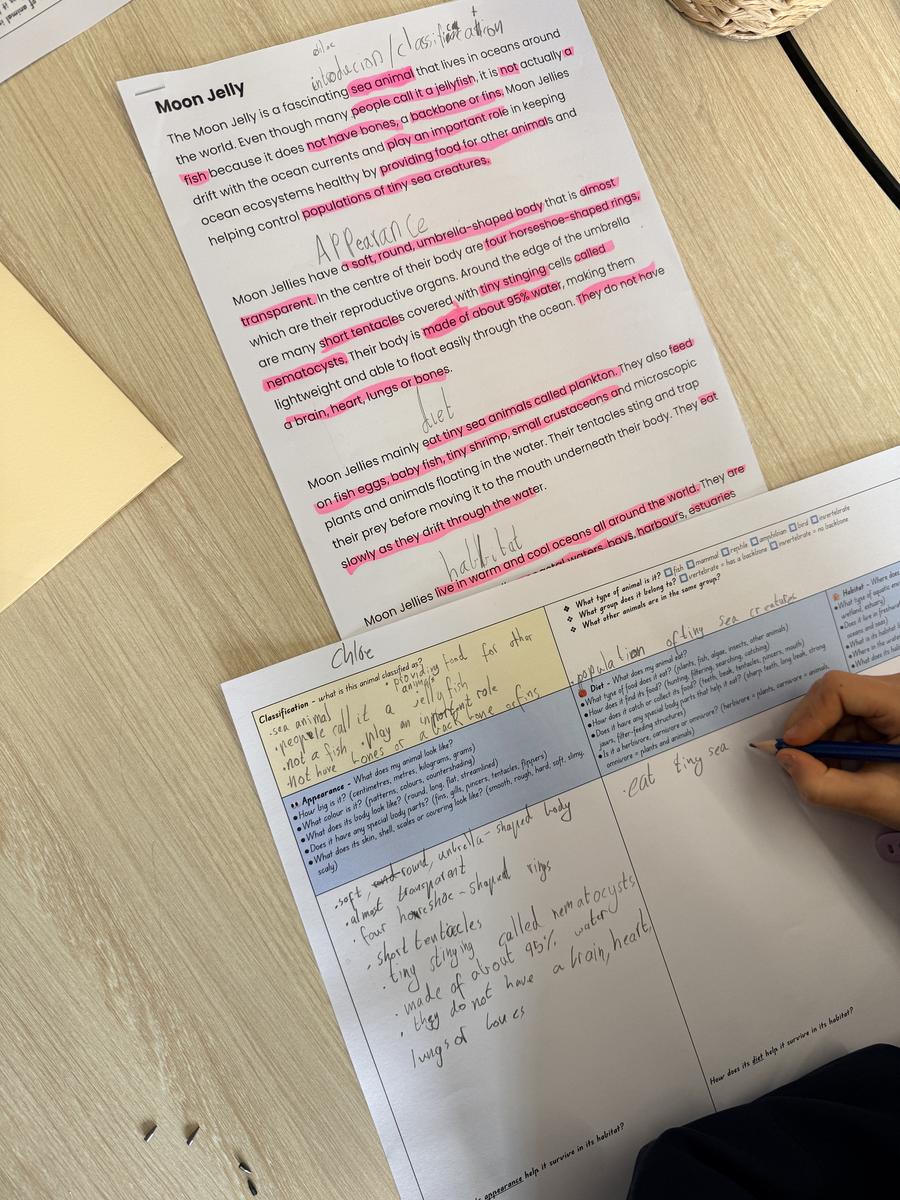 of animal
chloe
introducion/classification
Moon Jelly
The Moon Jelly is a fascinating sea animal that lives in oceans around
the world. Even though many people call it a jellyfish, it is not actually a
fish because it does not have bones, a backbone or fins. Moon Jellies
drift with the ocean currents and play an important role in keeping
ocean ecosystems healthy by providing food for other animals and
helping control populations of tiny sea creatures.
APPearance
Moon Jellies have a soft, round, umbrella-shaped body that is almost
transparent. In the centre of their body are four horseshoe-shaped rings,
which are their reproductive organs. Around the edge of the umbrella
are many short tentacles covered with tiny stinging cells called
nematocysts. Their body is made of about 95% water, making them
lightweight and able to float easily through the ocean. They do not have
a brain, heart, lungs or bones.
diet
Moon Jellies mainly eat tiny sea animals called plankton. They also feed
on fish eggs, baby fish, tiny shrimp, small crustaceans and microscopic
plants and animals floating in the water. Their tentacles sting and trap
their prey before moving it to the mouth underneath their body. They eat
slowly as they drift through the water.
habbitat
Moon Jellies live in warm and cool oceans all around the world. They are
waters, bays, harbours, estuaries
Chloe
Classification - what is this animal classified as?
·sea animal
·providing food for other
animals
·people call it a jellyfish
·not a fish ·play an important role
·not have bones or a back bone or fins
What type of animal is it? fish mammal reptile amphibian bird invertebrate
What group does it belong to? vertebrate = has a backbone invertebrate = no backbone
What other animals are in the same group?
·population of tiny sea creatures
Appearance - What does my animal look like?
•How big is it? (centimetres, metres, kilograms, grams)
•What colour is it? (patterns, colours, countershading)
•What does its body look like? (round, long, flat, streamlined)
•Does it have any special body parts? (fins, gills, pincers, tentacles, flippers)
•What does its skin, shell, scales or covering look like? (smooth, rough, hard, soft, slimy,
scaly)
Diet - What does my animal eat?
•What type of food does it eat? (plants, fish, algae, insects, other animals)
•How does it find its food? (hunting, filtering, searching, catching)
•How does it catch or collect its food? (teeth, beak, tentacles, pincers, mouth)
•Does it have any special body parts that help it eat? (sharp teeth, long beak, strong
jaws, filter-feeding structures)
•Is it a herbivore, carnivore or omnivore? (herbivore = plants, carnivore = animals,
omnivore = plants and animals)
Habitat - Where does
•What type of aquatic
wetland, estuary)
•Does it live in freshwater
oceans and seas)
•What is its habitat
•Where in the water
•What does its
·soft, round, umbrella-shaped body
·almost transparent
·four horseshoe-shaped rings
·short tentacles
·tiny stinging called nematocysts
·made of about 95% water
·they do not have a brain, heart,
lungs or bones
·eat tiny sea
How does its diet help it survive in its habitat?
appearance help it survive in its habitat?